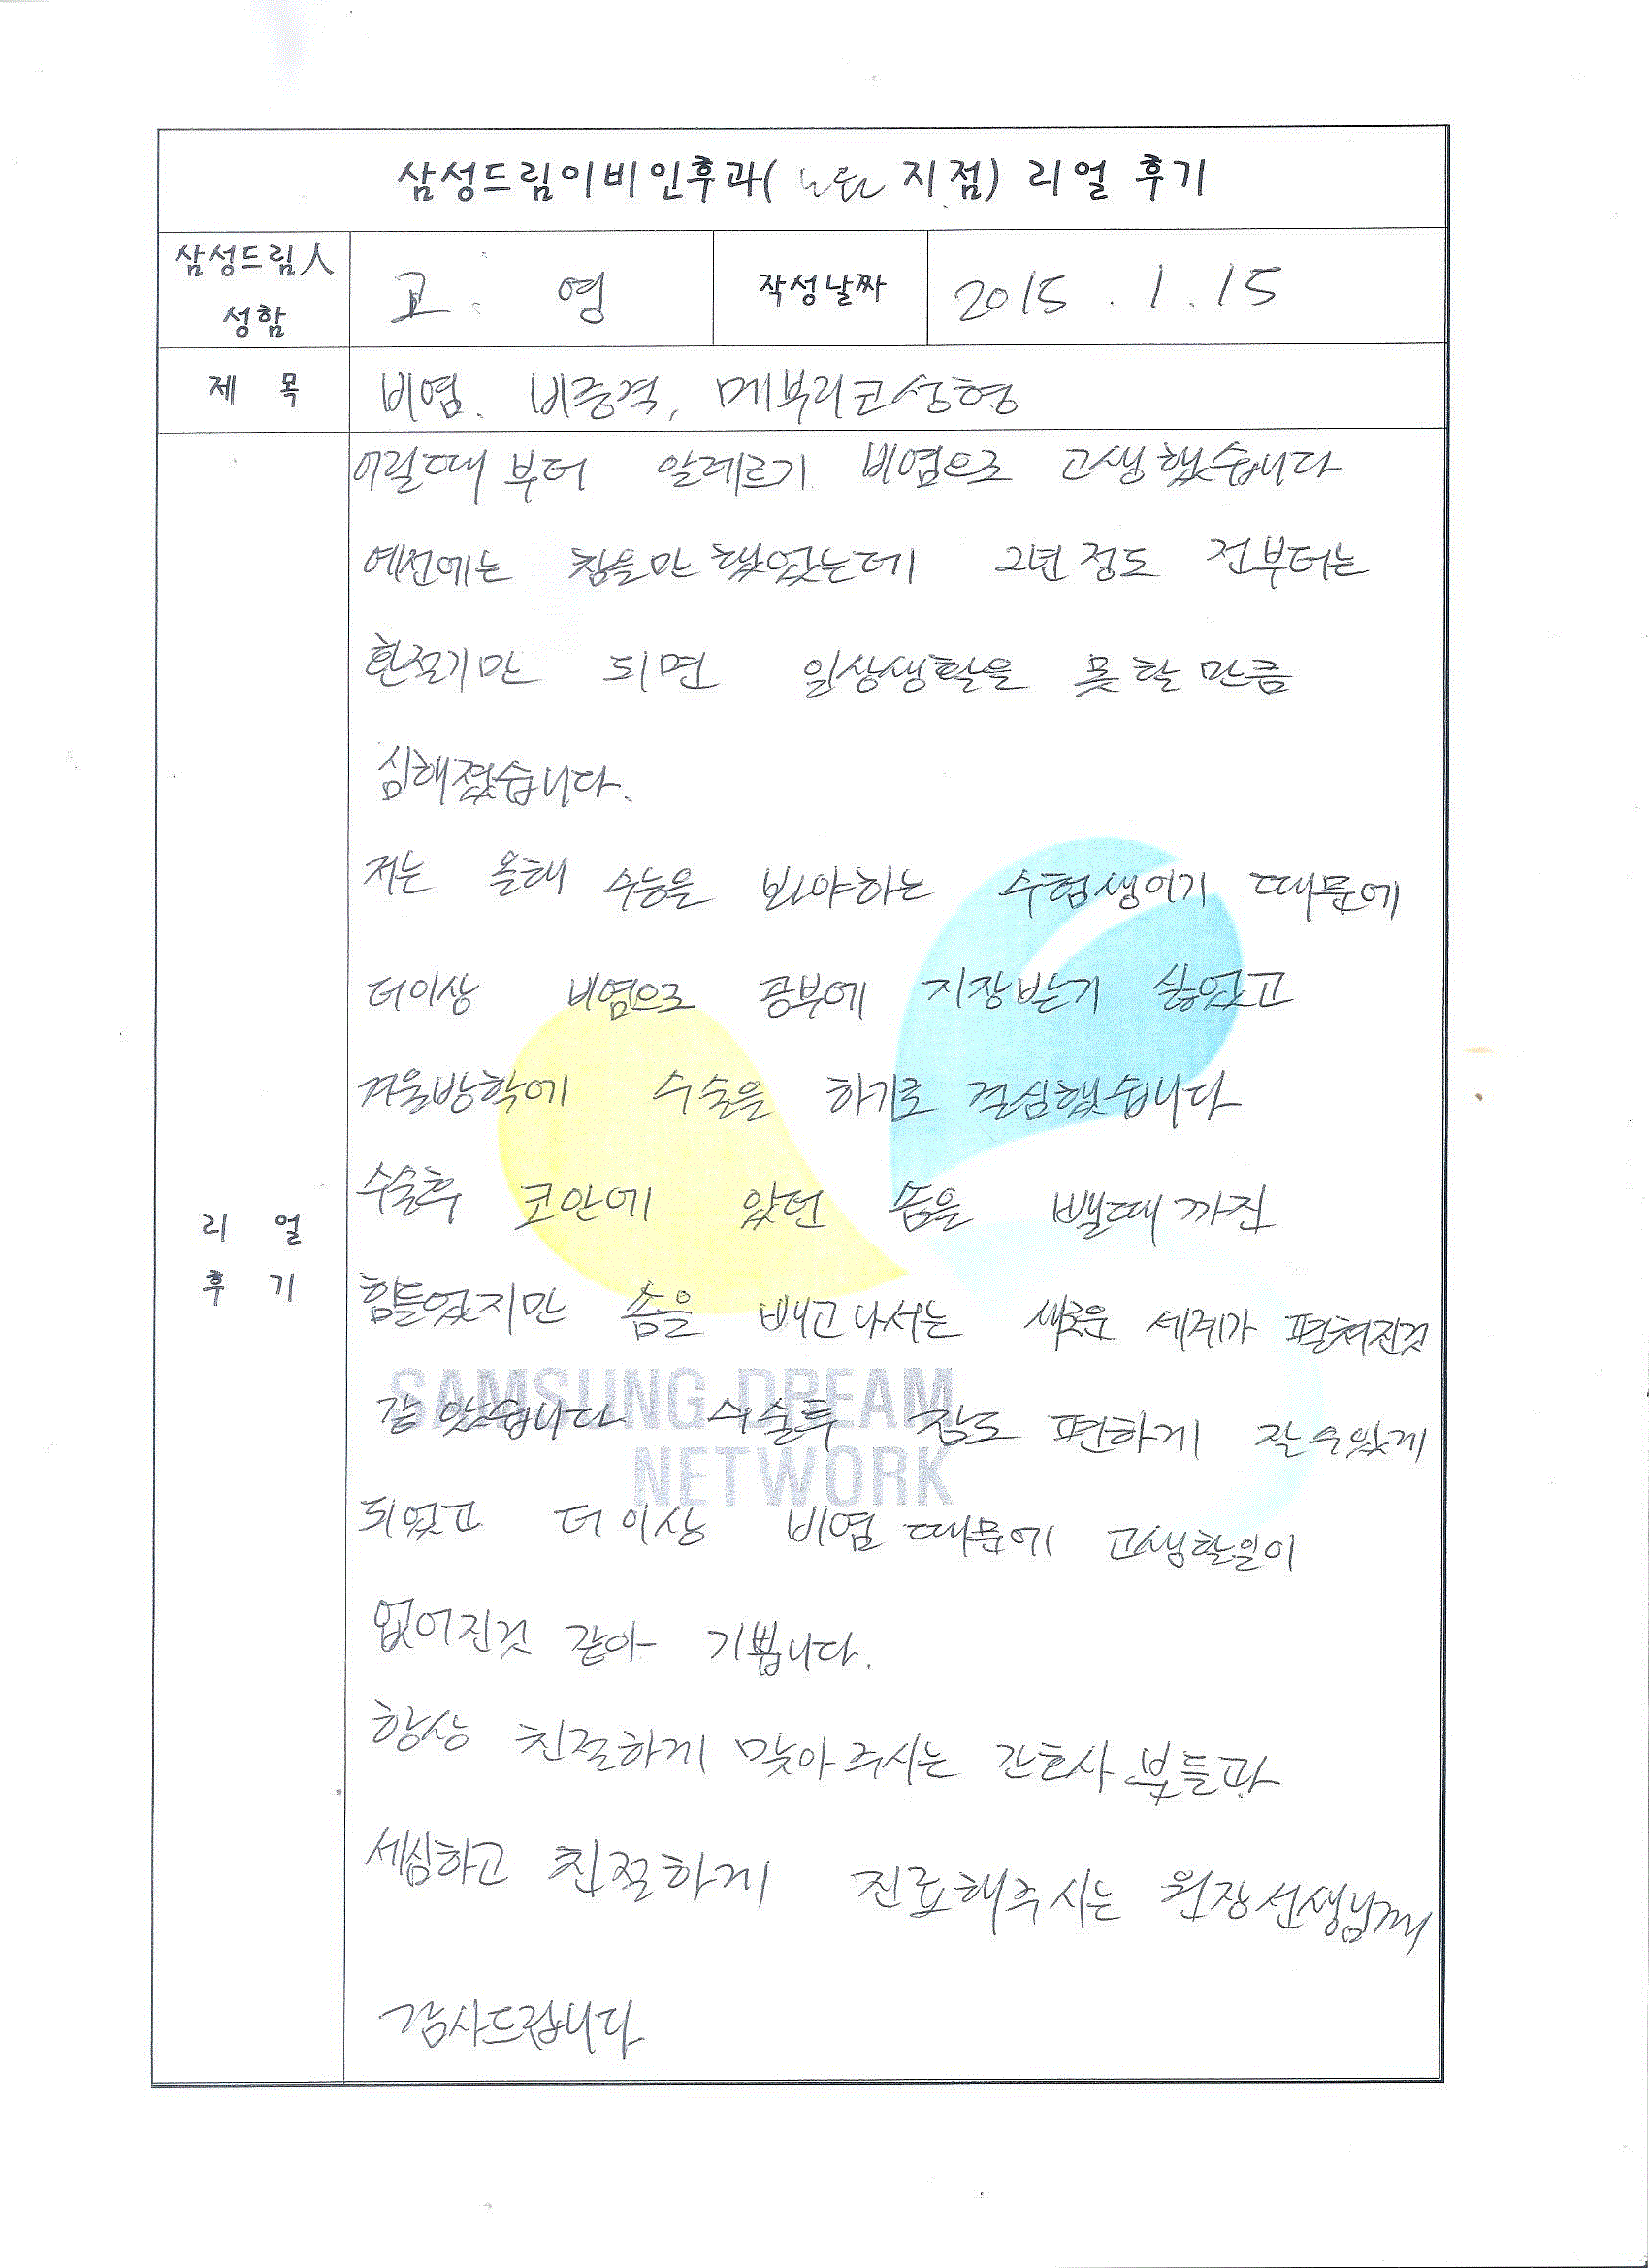 삼성드림이비인후과( 노원 지점) 리얼 후기
삼성드림人
성함
고 영
작성날짜
2015 . 1 . 15
제 목
비염. 비중격, 메부리코성형
어릴때 부터 알레르기 비염으로 고생했습니다
예전에는 참을만 했었는데 2년 정도 전부터는
환절기만 되면 일상생활을 못할만큼
심해졌습니다.
저는 올해 수능을 봐야하는 수험생이기 때문에
더이상 비염으로 공부에 지장받기 싫었고
겨울방학에 수술을 하기로 결심했습니다
리 얼
후 기
수술후 코안에 있던 솜을 뺄때 까진
힘들었지만 솜을 빼고나서는 새로운 세계가 펼쳐진것
같았습니다 수술후 잠도 편하게 잘수있게
되었고 더이상 비염 때문에 고생할일이
없어진것 같아 기쁩니다.
항상 친절하게 맞아주시는 간호사 분들과
세심하고 친절하게 진료해주시는 원장선생님께
감사드립니다
SAMSUNG DREAM
NETWORK